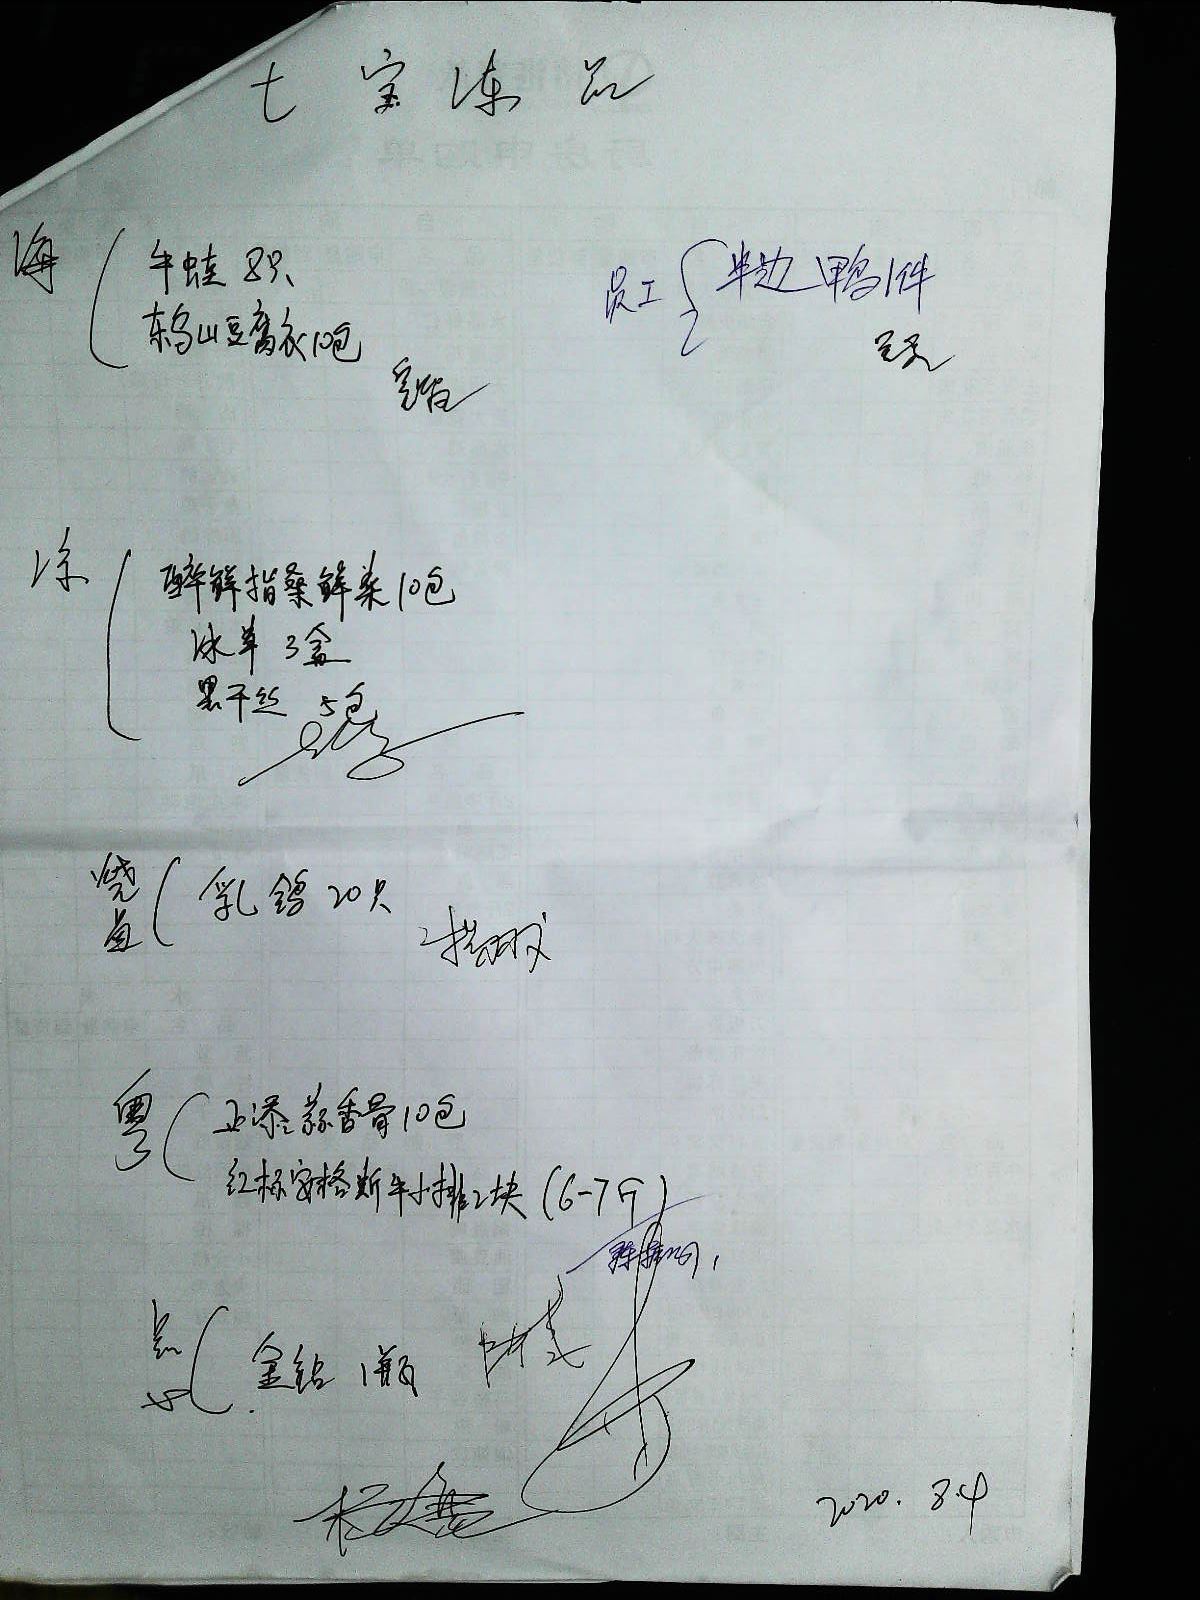 七宝冻品
海
牛蛙 8只
东乌山豆腐衣10包
员工
半边鸭1件
凉
醉鲜指桑鲜染10包
冰草 3盒
黑干丝 5包
烧卤
乳鸽 20只
粤
正添蒜香骨10包
红标安格斯牛小排2块(6-7斤)
点心
金钻 1瓶
2020. 8.4